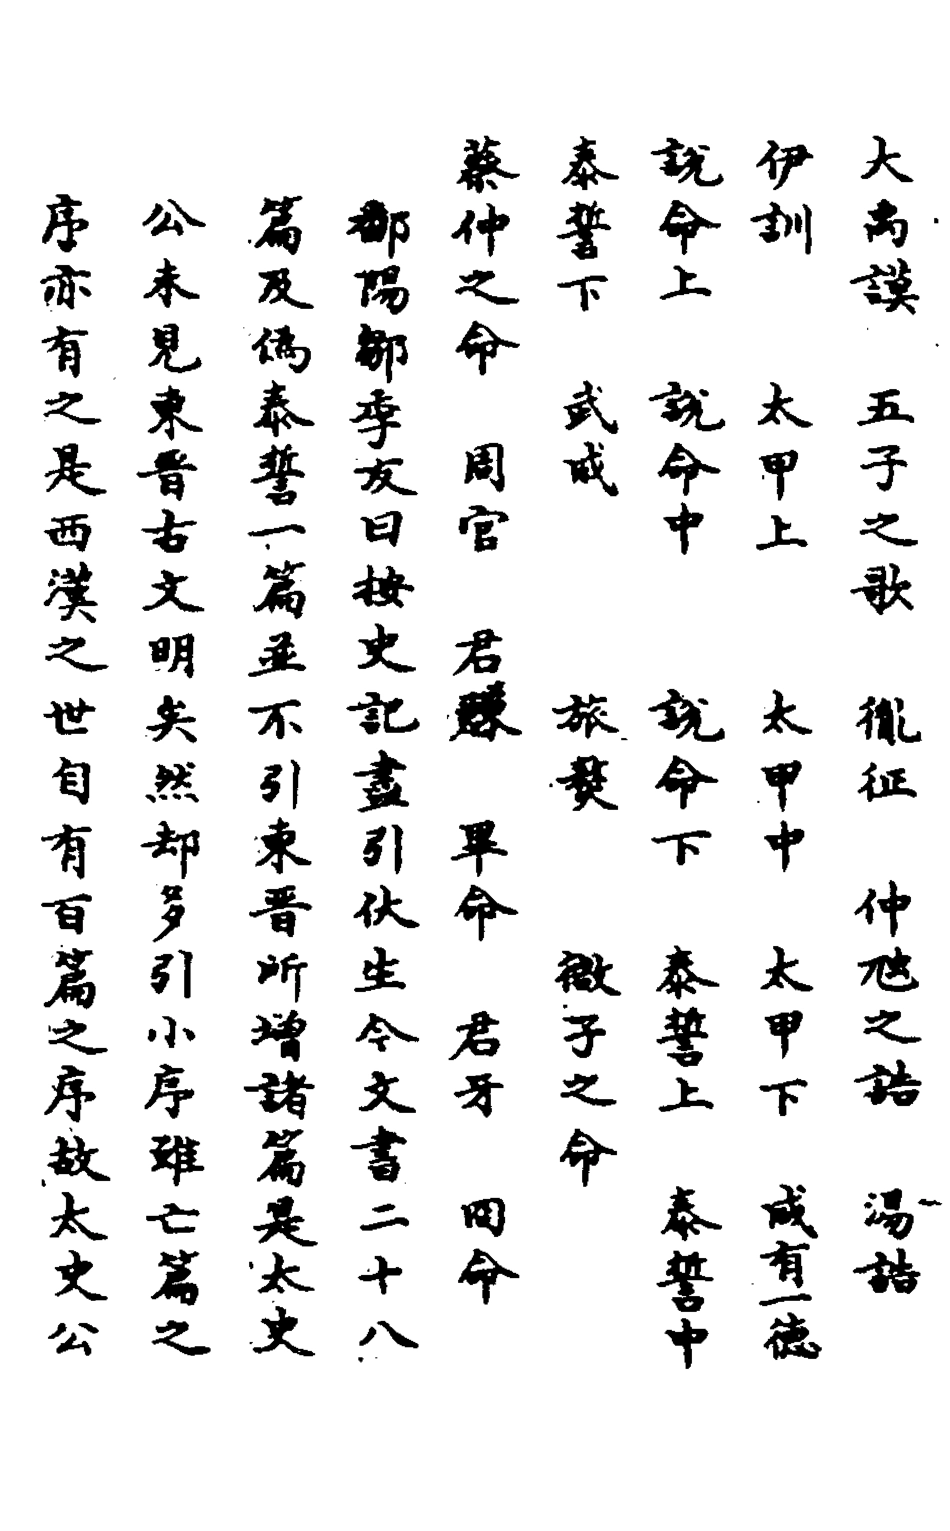 大禹謨　五子之歌　徿征　仲虺之誥　湯誥
伊訓　太甲上　太甲中　太甲下　咸有一德
說命上　說命中　說命下　泰誓上　泰誓中
泰誓下　武成　旅獒　微子之命
蔡仲之命　周官　君陳　畢命　君牙　冏命
鄱陽鄒季友曰按史記盡引伏生今文書二十八
篇及偽泰誓一篇並不引東晉所增諸篇是太史
公未見東晉古文明矣然却多引小序雖亡篇之
序亦有之是西漢之世自有百篇之序故太史公